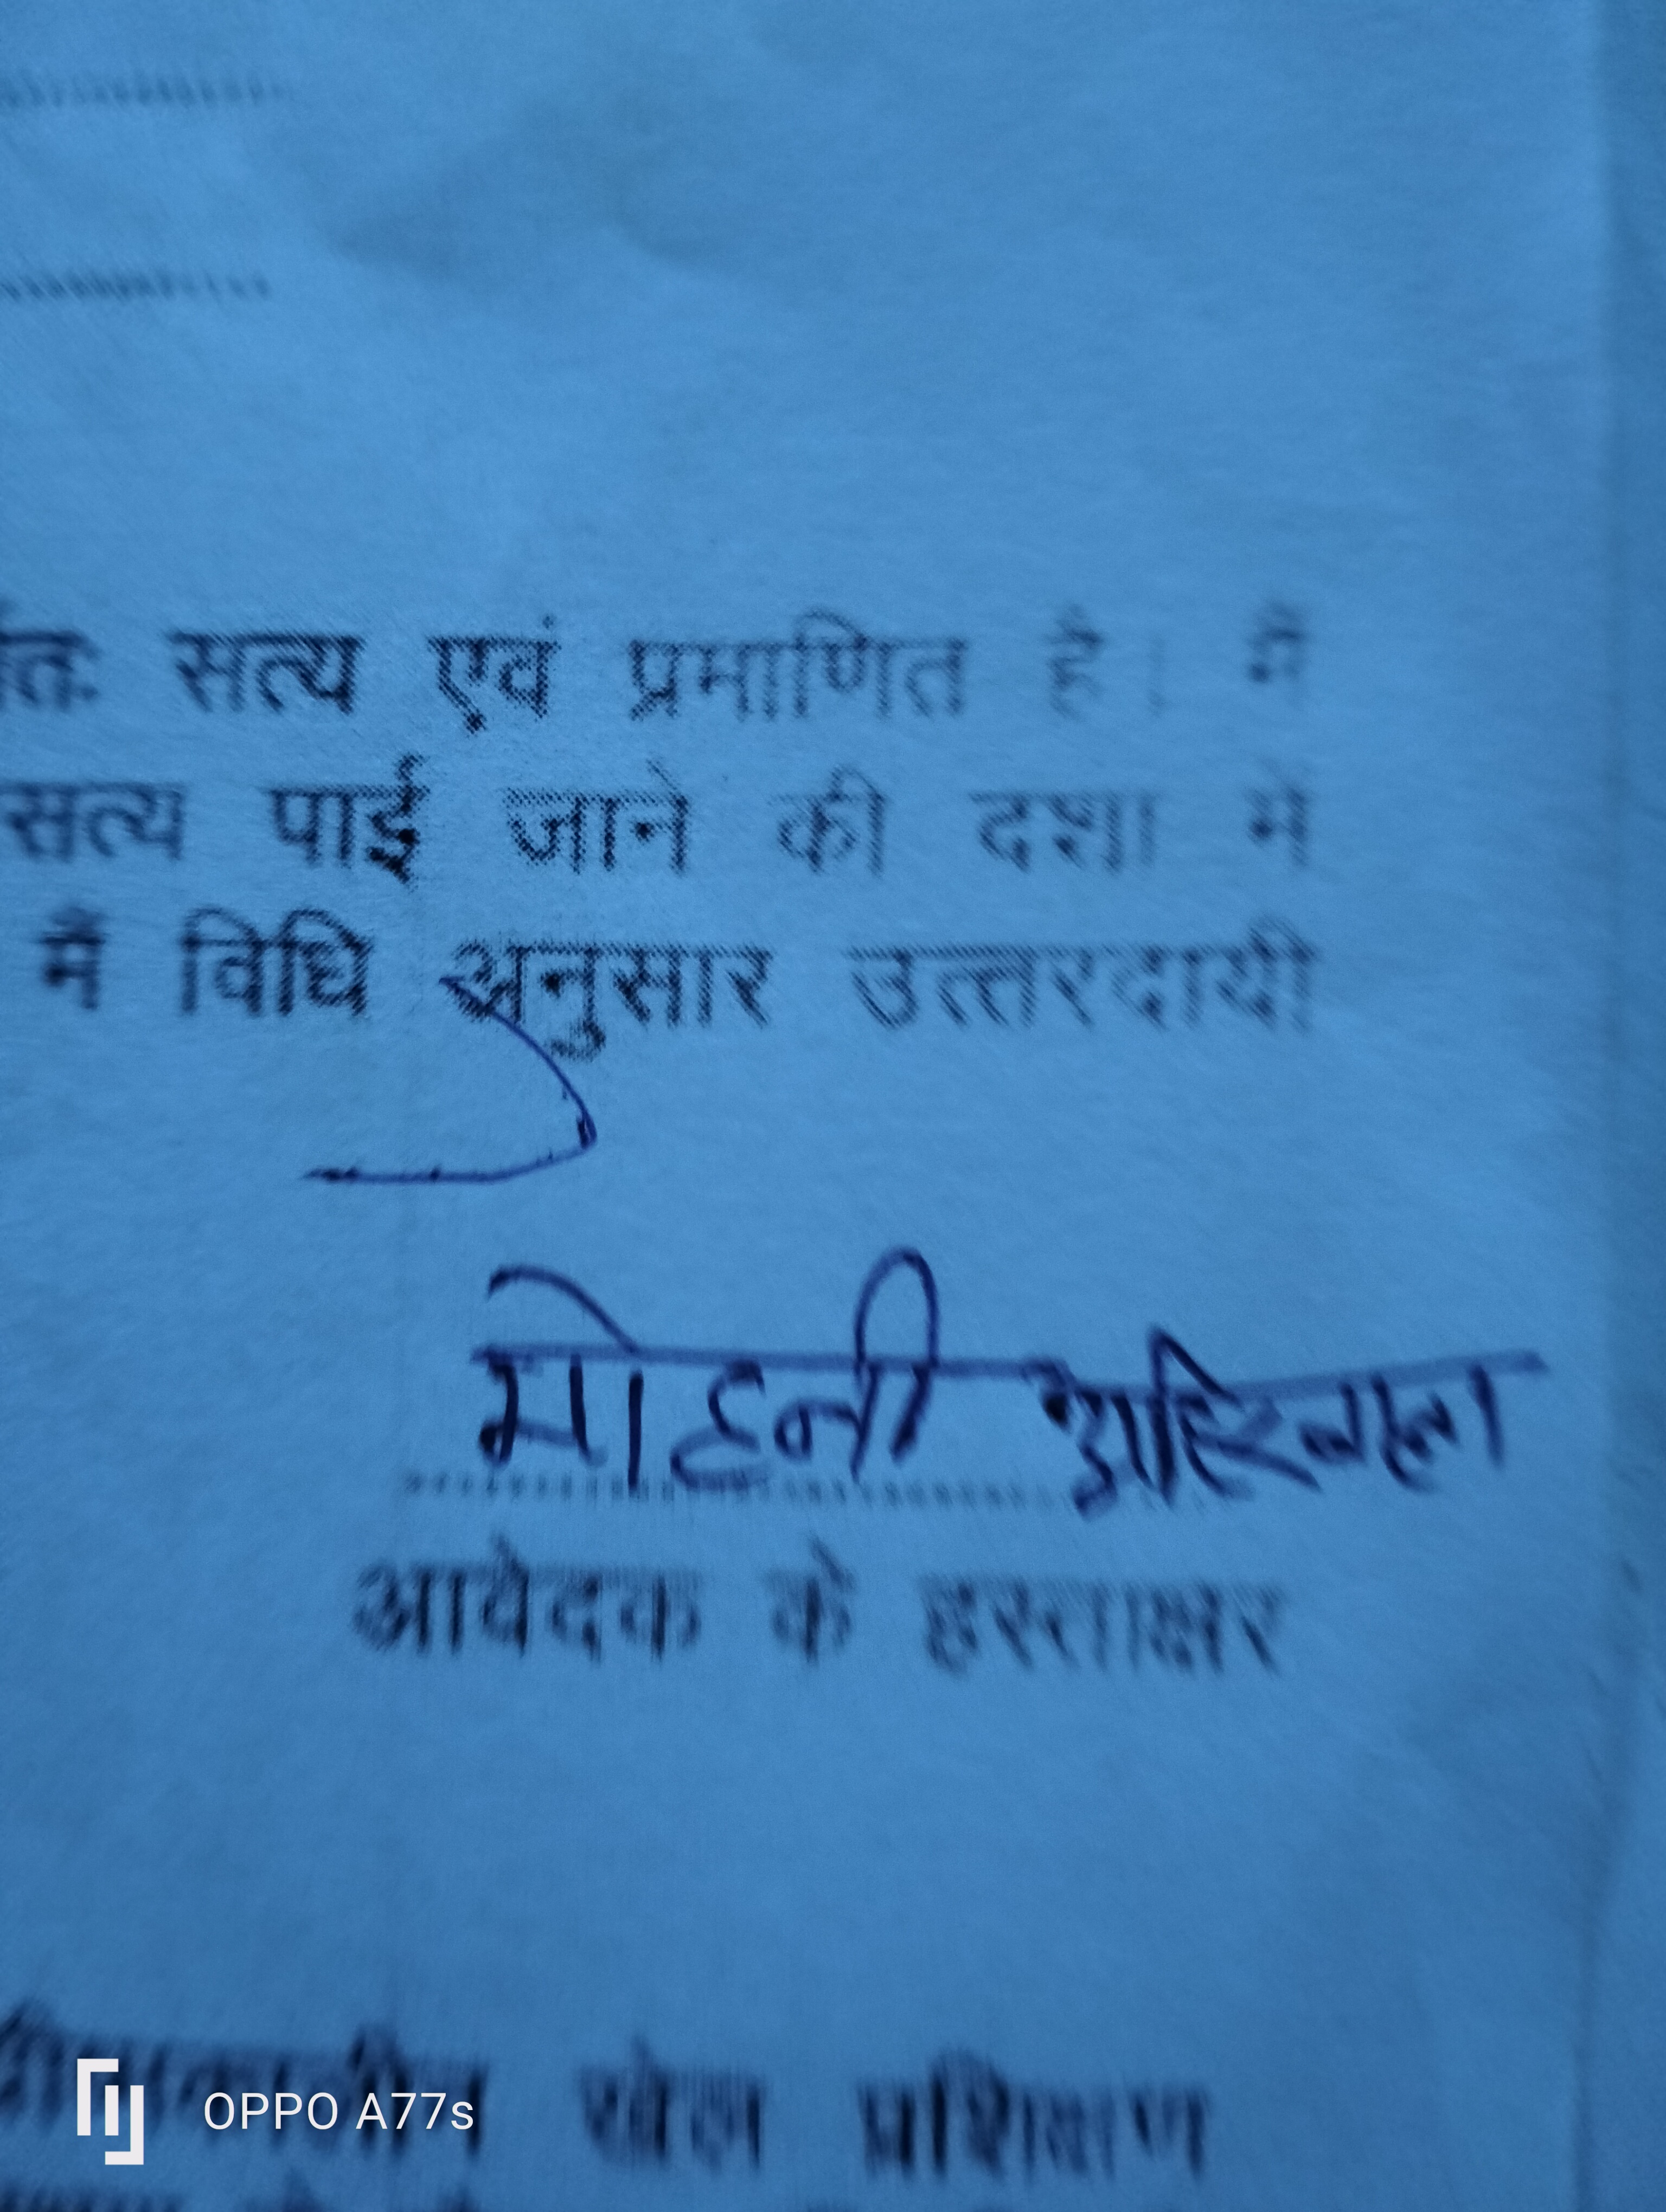 सत्य एवं प्रमाणित है। मैं
सत्य पाई जाने की दशा में
मैं विधि अनुसार उत्तरदायी
मोहनी अहिरवार
आवेदक के हस्ताक्षर
खेल प्रशिक्षण
OPPO A77s